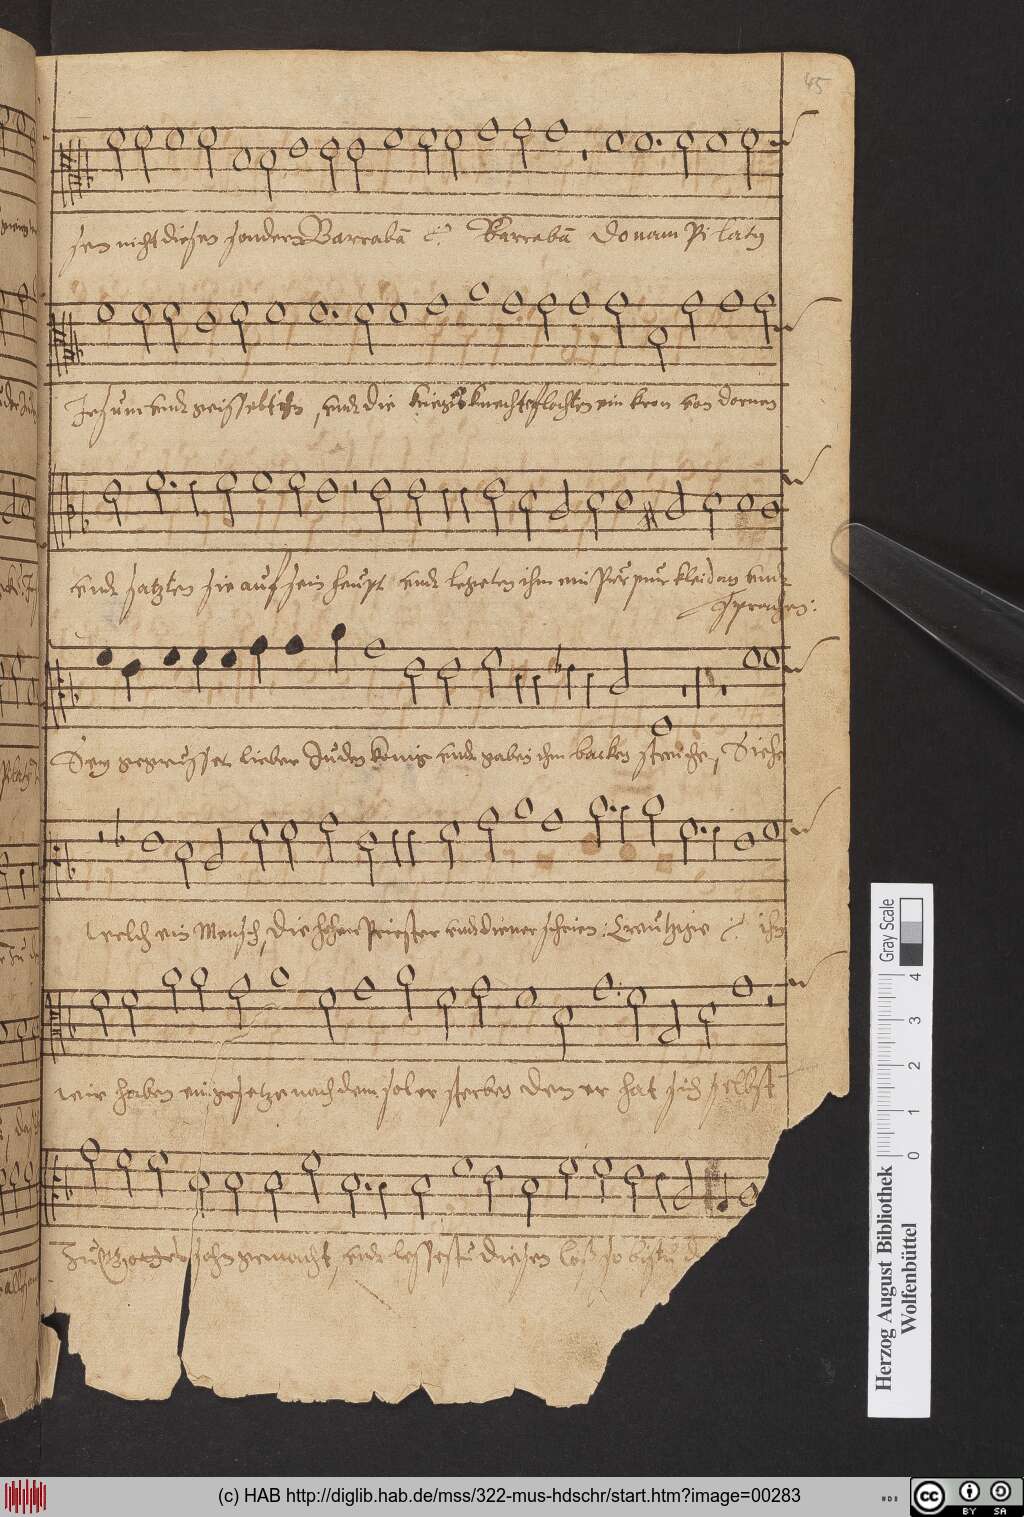 45
sen nicht diesen sonder Barrabā Barrabā Do nam Pi laty
Jesum vnd geisselt ihn, vnd die kriegsknechte flochten ein kron von dornen
vnd satzten sie auf sein heupt vnd legeten ihm ein Pur pur kleid an vnd
sprachen:
Sey gegrusset lieber Juden konig vnd gaben ihm backen streiche, Siehe
welch ein Mensch, Die hohen Priester vnd diener schrien: Creutzige ihn
wir haben ein gesetze nach dem sol er sterben denn er hat sich selbst
zu Gottes sohn gemacht, vnd lessestu diesen loß so bistu
Gray Scale
0 1 2 3 4
Herzog August Bibliothek
Wolfenbüttel
(c) HAB http://diglib.hab.de/mss/322-mus-hdschr/start.htm?image=00283
cc
BY SA